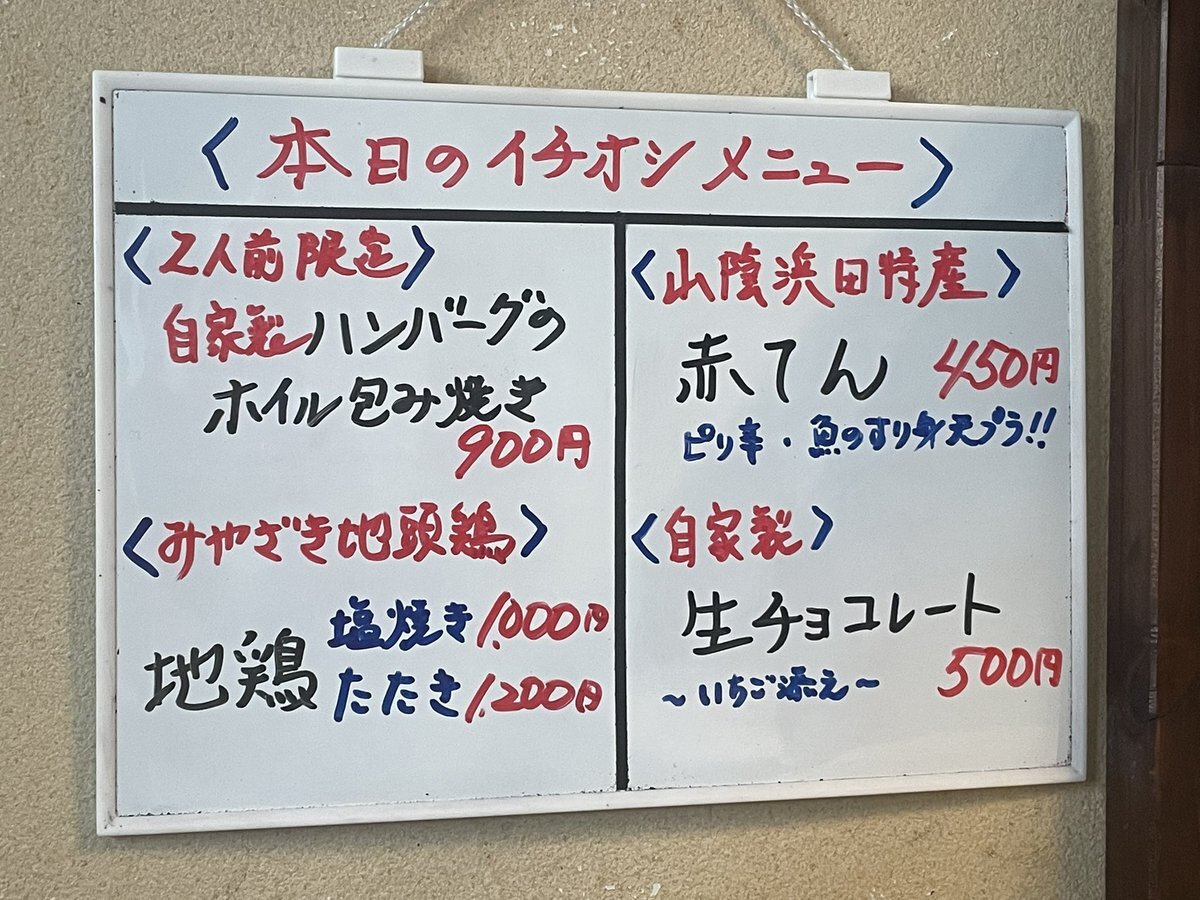 〈本日のイチオシメニュー〉
〈2人前限定〉
自家製ハンバーグの
ホイル包み焼き
900円
〈みやざき地頭鶏〉
塩焼き1,000円
地鶏
たたき1,200円
〈山陰浜田特産〉
赤てん 450円
ピリ辛・魚のすり身天プラ!!
〈自家製〉
生チョコレート
~いちご添え~ 500円